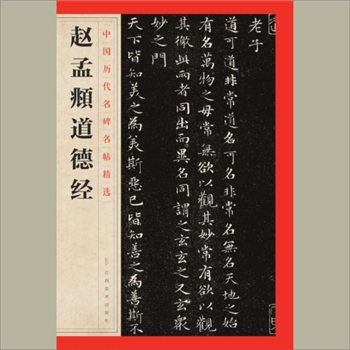 赵孟頫道德经
中国历代名碑名帖精选
江西美术出版社
老子
道可道非常道名可名非常名無名天地之始
有名萬物之母常無欲以觀其妙常有欲以觀
其徼此兩者同出而異名同謂之玄玄之又玄眾
妙之門
天下皆知美之為美斯惡已皆知善之為善斯不